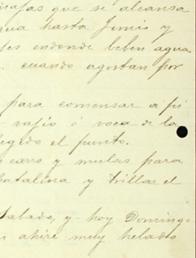 rajas que se alcansa
ua hasta Junio y
les endonde beben agua
. cuando agostan por
para comensar a pi
rajio ó voca de la
egido el punto.
carro y mulas para
atalina y trillar el
Salado, y hoy Domingo
aire muy helado